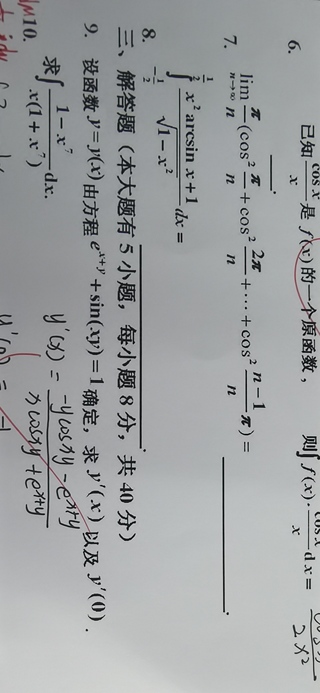 6. 已知 cos x / x 是 f(x) 的一个原函数, 则∫ f(x)·cos x / x dx = / 2x²
7. lim n→∞ π/n (cos² π/n + cos² 2π/n + ⋯ + cos² (n−1)/n π) = .
8. ∫_{-1/2}^{1/2} (x² arcsin x + 1)/√(1 − x²) dx = .
三、解答题（本大题有 5 小题，每小题 8 分，共 40 分）
9. 设函数 y = y(x) 由方程 e^{x+y} + sin(xy) = 1 确定，求 y′(x) 以及 y′(0).
y′(x) = (−y cos xy − e^{x+y}) / (x cos xy + e^{x+y})
y′(0) = −1
10. 求 ∫ (1 − x⁷)/(x(1 + x⁷)) dx.